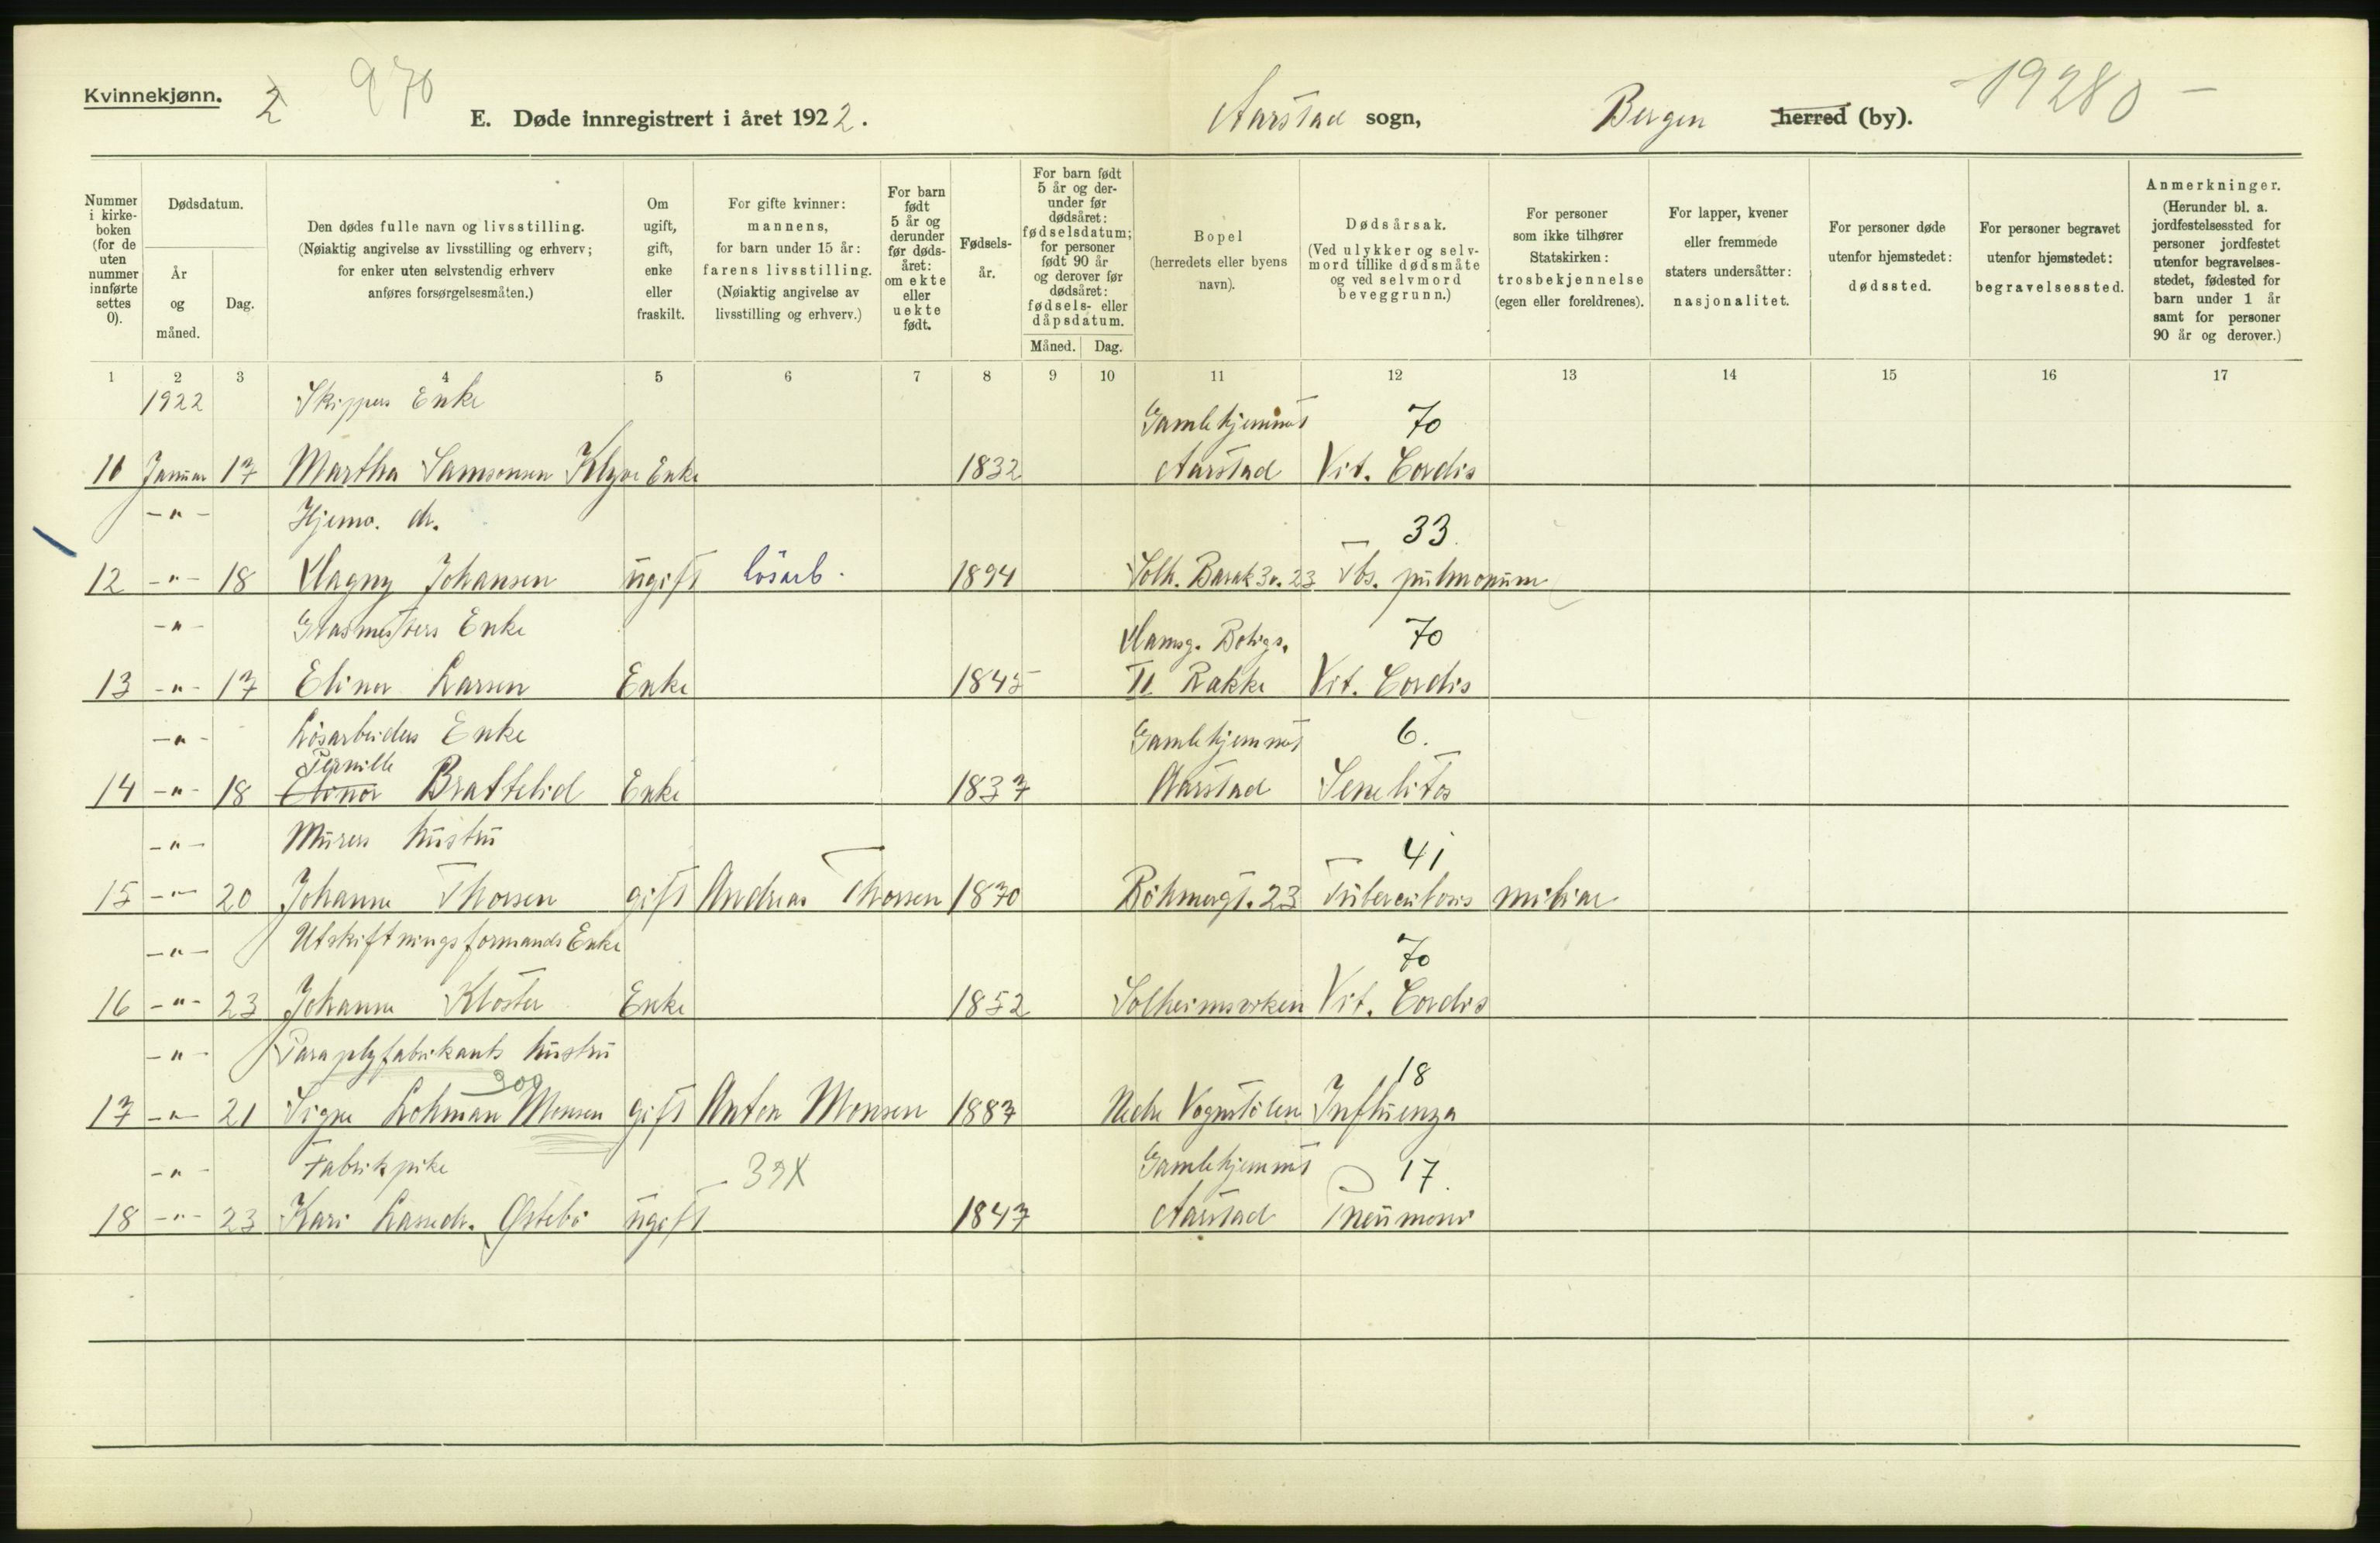 Kvinnekjønn.
2
970
E. Døde innregistrert i året 1922.
Aarstad sogn,
Bergen herred (by).
19280
Nummer i kirke- boken (for de uten nummer innførte settes 0).
Dødsdatum.
År og måned.
Dag.
Den dødes fulle navn og livsstilling. (Nøiaktig angivelse av livsstilling og erhverv; for enker uten selvstendig erhverv anføres forsørgelsesmåten.)
Om ugift, gift, enke eller fraskilt.
For gifte kvinner: mannens, for barn under 15 år: farens livsstilling. (Nøiaktig angivelse av livsstilling og erhverv.)
For barn født 5 år og derunder før døds- året: om ekte eller uekte født.
Fødsels- år.
For barn født 5 år og der- under før dødsåret: fødselsdatum; for personer født 90 år og derover før dødsåret: fødsels- eller dåpsdatum.
Måned. Dag.
Bopel (herredets eller byens navn).
Dødsårsak. (Ved ulykker og selv- mord tillike dødsmåte og ved selvmord beveggrunn.)
For personer som ikke tilhører Statskirken: trosbekjennelse (egen eller foreldrenes).
For lapper, kvener eller fremmede staters undersåtter: nasjonalitet.
For personer døde utenfor hjemstedet: dødssted.
For personer begravet utenfor hjemstedet: begravelsessted.
Anmerkninger. (Herunder bl. a. jordfestelsessted for personer jordfestet utenfor begravelses- stedet, fødested for barn under 1 år samt for personer 90 år og derover.)
1 2 3 4 5 6 7 8 9 10 11 12 13 14 15 16 17
1922 Skippers Enke Gamlehjemmet 70
Januar 17 Martha Samsonsen Enke 1832 Aarstad Vit. Cordis
-"- Hjemv. dr. 33
12 -"- 18 Magny Johansen ugift løsarb. 1894 Solh. Barak 3 v. 23 Tbs. pulmonum
-"- Glasmesters Enke 70
13 -"- 17 Elina Larsen Enke 1845 Vit. Cordis
-"- Løsarbeiders Enke Gamlehjemmet 6.
Pernille
14 -"- 18 Elinor Brattelid Enke 1837 Aarstad Senelitas
-"- Murers hustru 41
15 -"- 20 Johanne Thorsen gift Andreas Thorsen 1870 Böhmergt. 23 Tuberculosis miliar
-"- Utskiftningsformands Enke 70
16 -"- 23 Johanne Kloster Enke 1852 Solheimsviken Vit. Cordis
-"- Paraplyfabrikants hustru 18
300
17 -"- 21 Signe Lohman Monsen gift Anton Monsen 1887 Nedre Vognstölen Influenza
-"- Fabrikpike 39X Gamlehjemmet 17
18 -"- 23 Kari Larsdr. Østebø ugift 1847 Aarstad Pneumoni